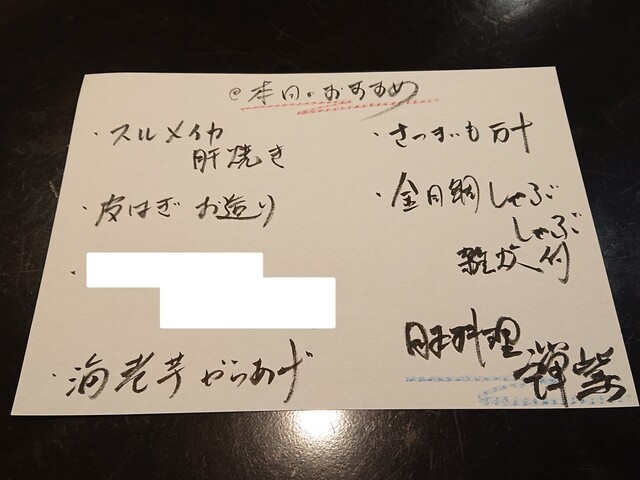 @本日のおすすめ
・スルメイカ
肝焼き
・皮はぎ お造り
・
・海老芋からあげ
・さつまいも万十
・金目鯛しゃぶ
しゃぶ
雑炊付
料理